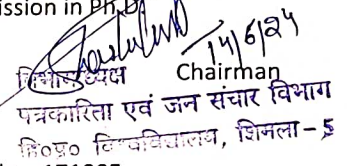 ission in Ph.D
14/6/24
विभागाध्यक्ष
Chairman
पत्रकारिता एवं जन संचार विभाग
हि०प्र० विश्वविद्यालय, शिमला – 5